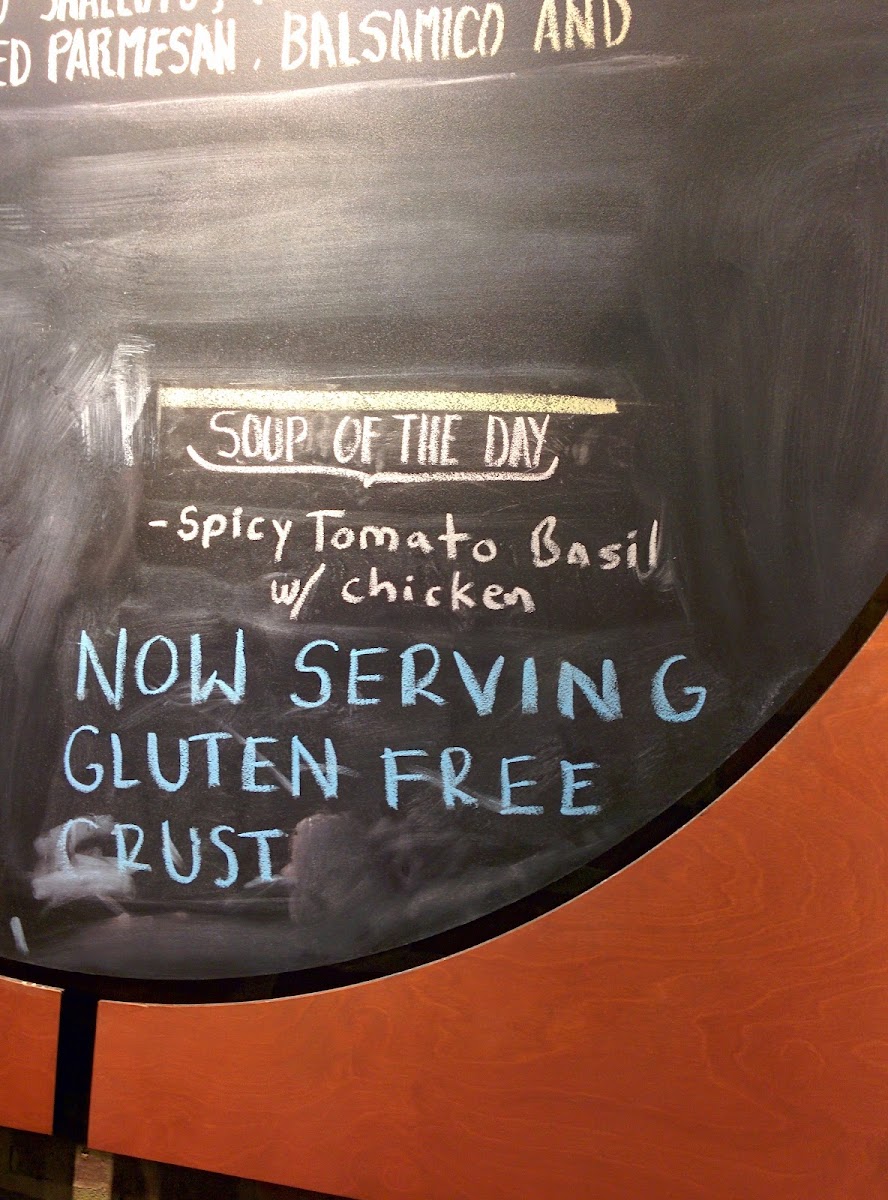 PARMESAN, BALSAMICO AND
SOUP OF THE DAY
-Spicy Tomato Basil
w/ chicken
NOW SERVING
GLUTEN FREE
CRUST